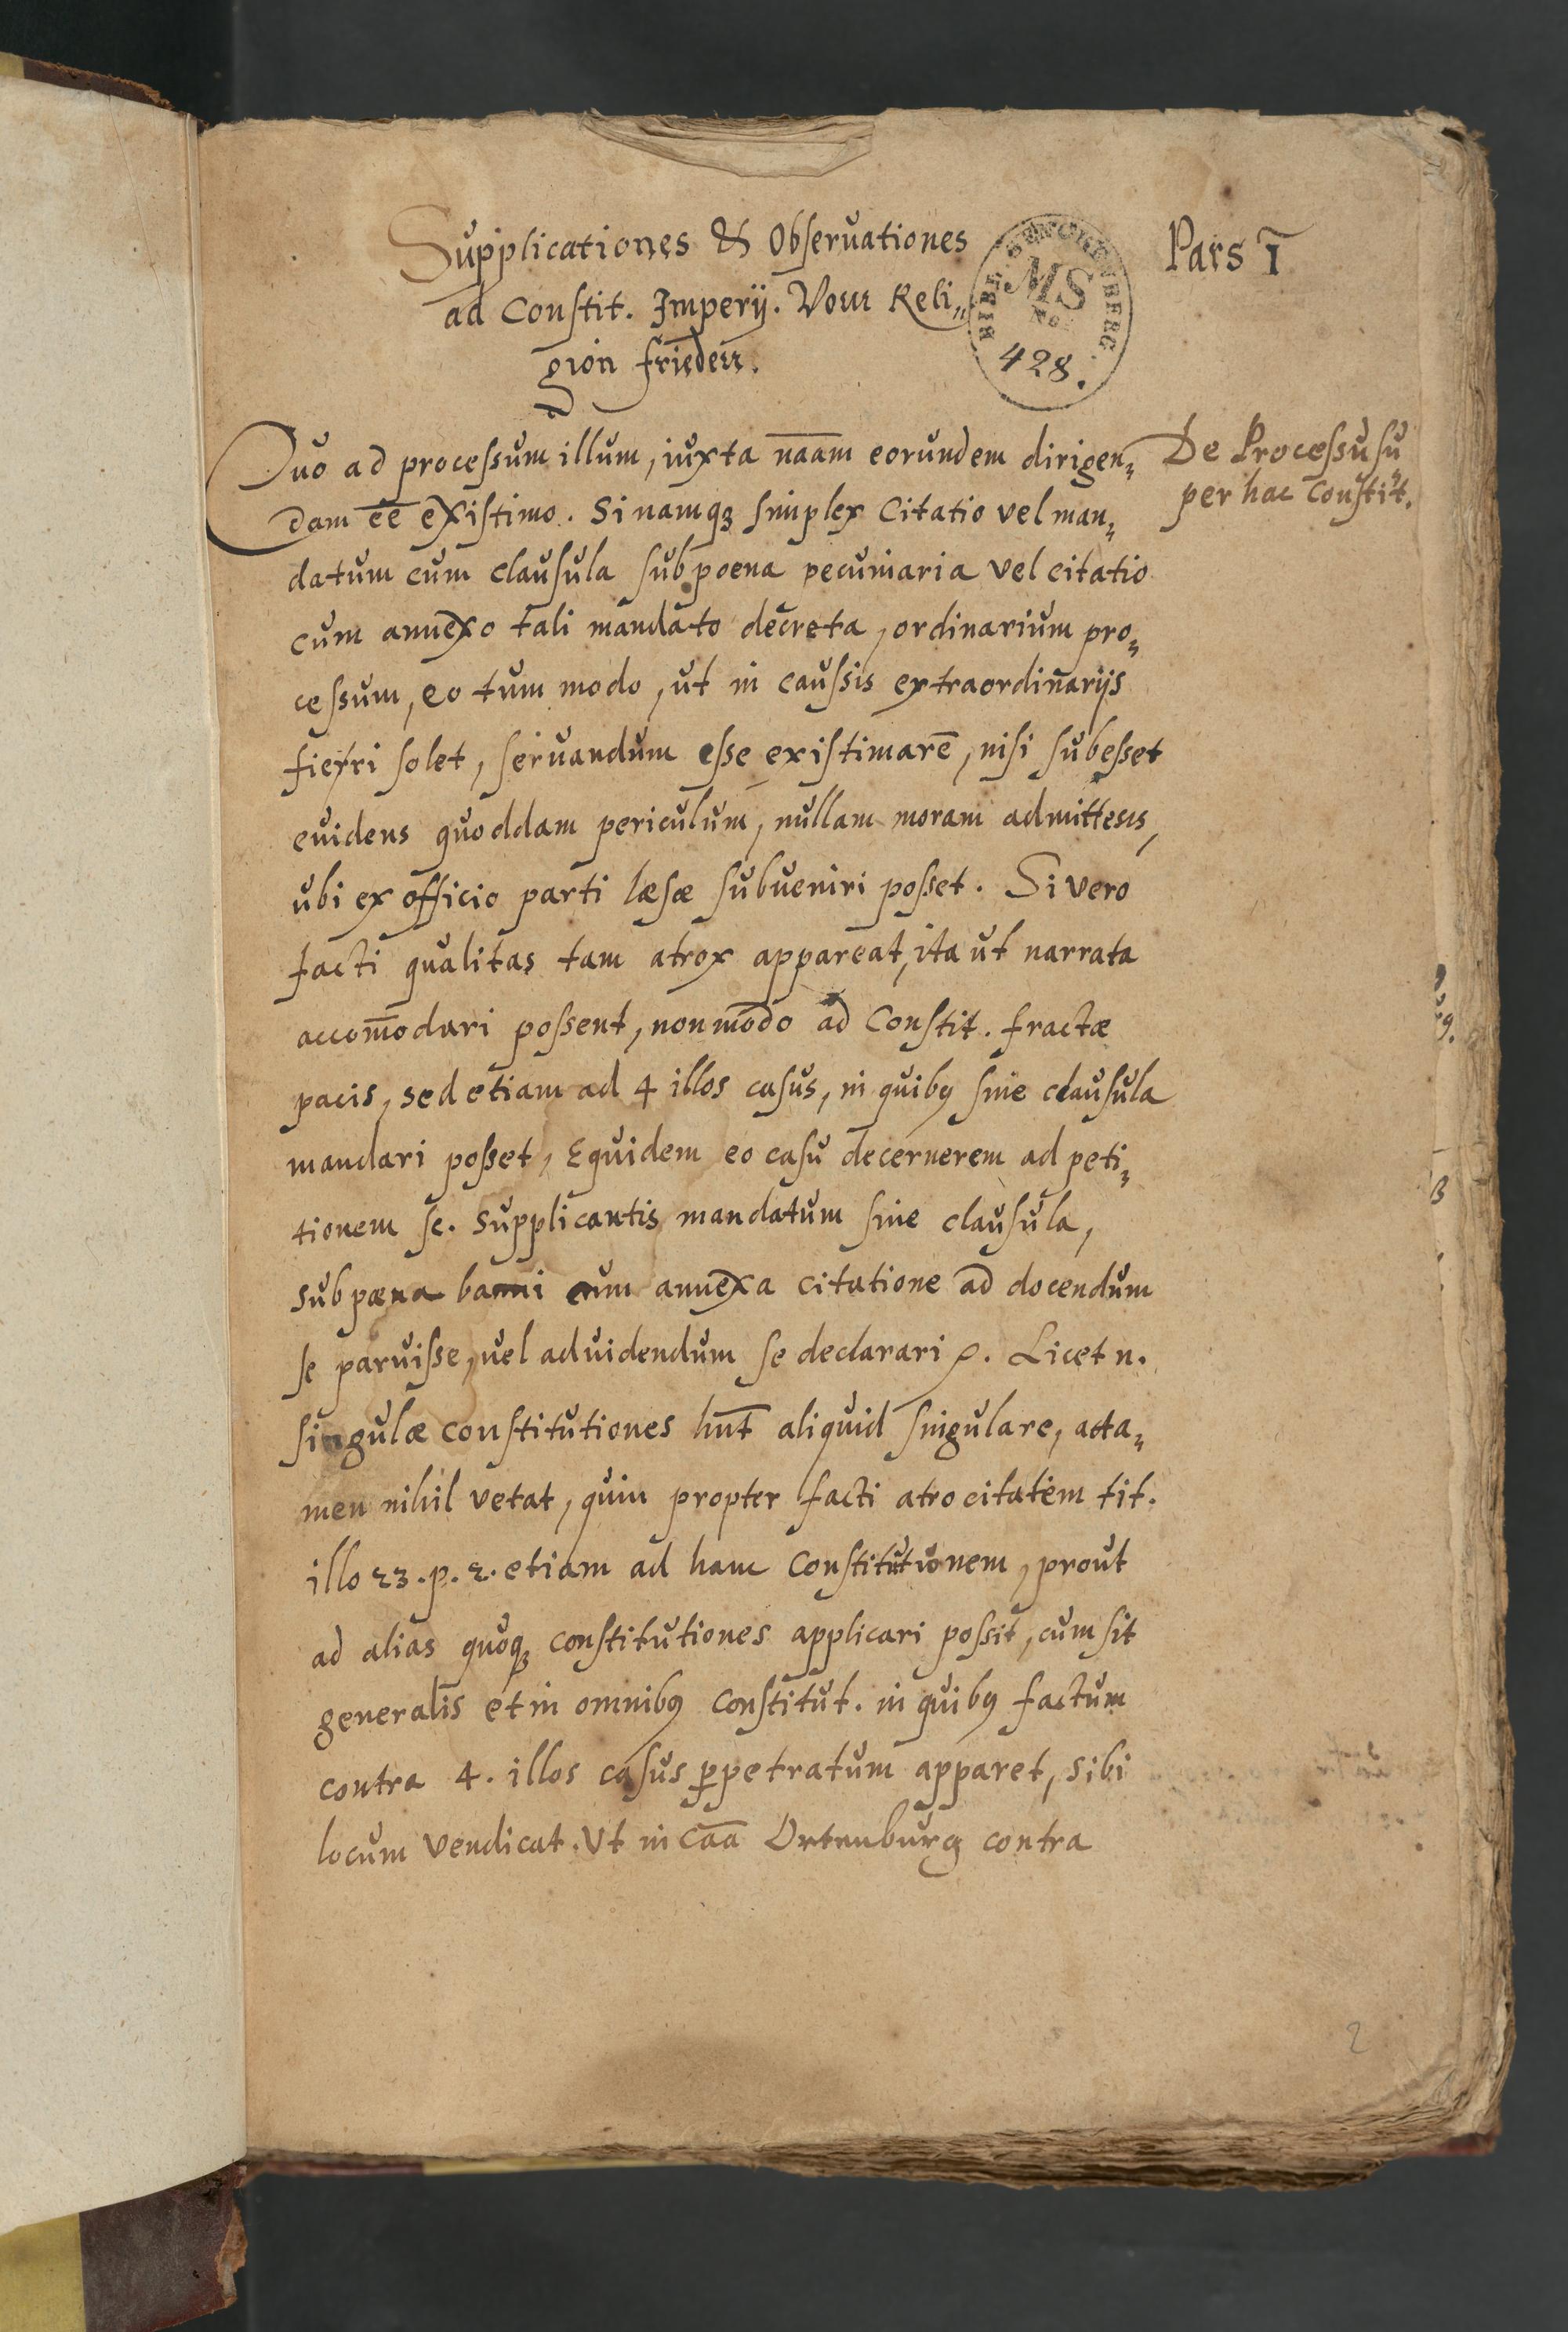 Supplicationes & Observationes
ad Constit. Imperij. Vom Reli„
gion frieden.
Pars I
BIBL. SENCKENBERG.
MS
No.
428.
Quo ad processum illum, iuxta nāām eorundem dirigen„
dam ēē existimo. Si namqȝ simplex Citatio vel man„
datum cum clausula sub poena pecuniaria vel citatio
cum annexo tali mandato decreta, ordinarium pro„
cessum, eo tum modo, ut in caussis extraordinarijs
fieri solet, servandum esse existimarē, nisi subesset
evidens quoddam periculum, nullam moram admittens,
ubi ex officio parti læsæ subveniri posset. Si vero
facti qualitas tam atrox appareat, ita ut narrata
accom̄odari possent, non modo ad Constit. fractæ
pacis, sed etiam ad 4 illos casus, in quibꝰ sine clausula
mandari posset, Equidem eo casu decernerem ad peti„
tionem sc. supplicantis mandatum sine clausula,
sub pœna banni cum annexa citatione ad docendum
se paruisse, vel ad videndum se declarari p. Licet n.
singulæ constitutiones hnt̄ aliquid singulare, atta„
men nihil vetat, quin propter facti atrocitatem tit.
illo 23. p. 2. etiam ad hanc Constitutionem, prout
ad alias quoqȝ constitutiones applicari possit, cum sit
generalis et in omnibꝰ constitut. in quibꝰ factum
contra 4. illos casus ꝑpetratum apparet, sibi
locum vendicat. Ut in cāā Ortenburg contra
De Processu su
per hac Constit.
2